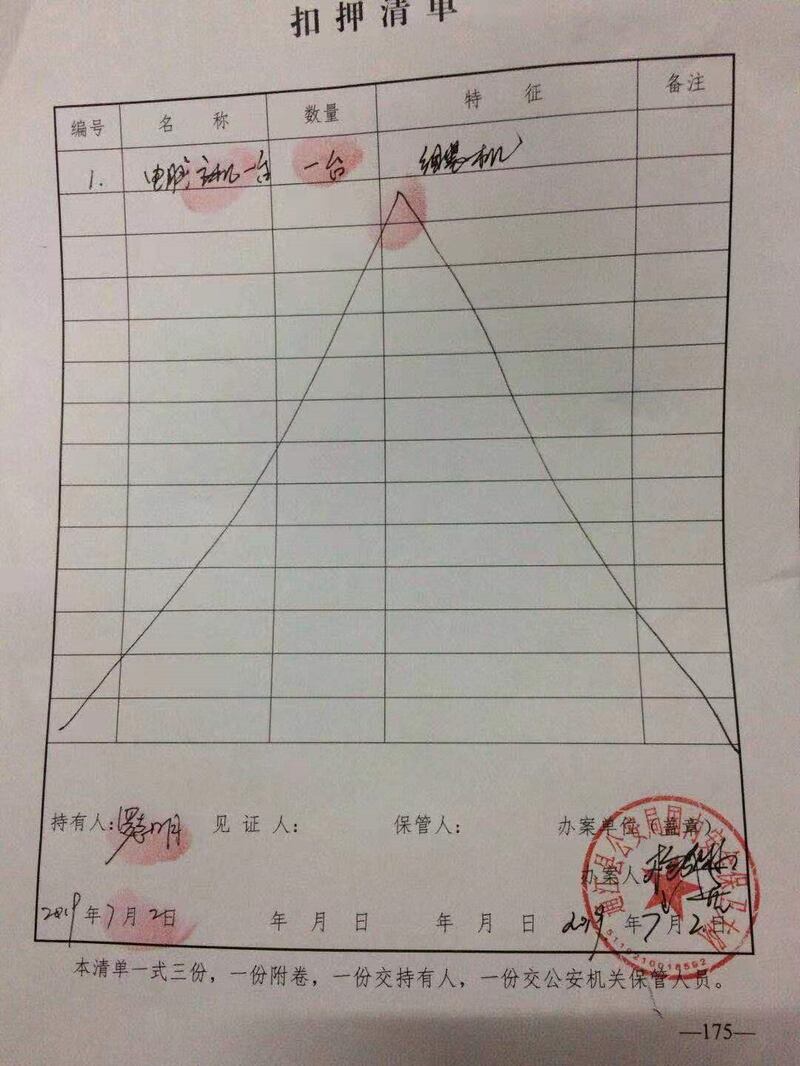 扣押清单
编号 名称 数量 特征 备注
1. 电脑主机一台 一台 组装机
持有人: 见证人: 保管人: 办案单位（盖章）
办案人
2019年7月2日 年 月 日 年 月 日 2019年7月2日
通江县公安局国内安全保卫大队
5119210018592
本清单一式三份，一份附卷，一份交持有人，一份交公安机关保管人员。
—175—